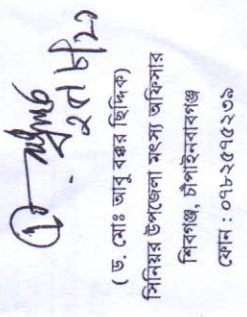 ২৭/৮/২০
( ড. মোঃ আবু বক্কর ছিদ্দিক)
সিনিয়র উপজেলা মৎস্য অফিসার
শিবগঞ্জ, চাঁপাইনবাবগঞ্জ
ফোন : ০৭৮২৫৭৫২৩৯